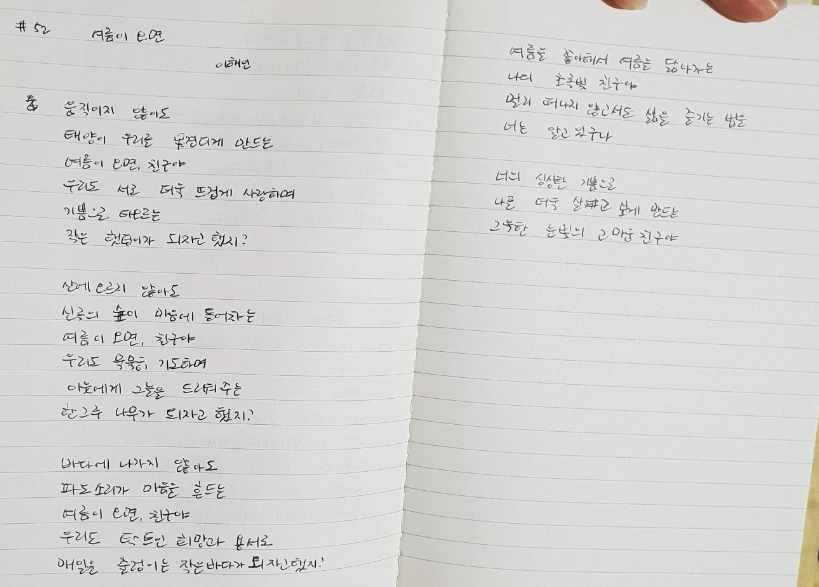 #52 여름이 오면
이해인
움직이지 않아도
태양이 우리를 못견디게 만드는
여름이 오면, 친구야
우리도 서로 더욱 뜨겁게 사랑하며
기쁨으로 타오르는
작은 햇덩이가 되자고 했지?
산에 오르지 않아도
신록의 숲이 마음에 들어차는
여름이 오면, 친구야
우리도 묵묵히 기도하며
이웃에게 그늘을 드리워주는
한그루 나무가 되자고 했지?
바다에 나가지 않아도
파도 소리가 마음을 흔드는
여름이 오면, 친구야
우리도 탁 트인 희망과 용서로
매일을 출렁이는 작은바다가 되자고 했지?
여름을 좋아해서 여름을 닮아가는
나의 초록빛 친구야
멀리 떠나지 않고서도 삶을 즐기는 법을
너는 알고 있구나
너의 싱싱한 기쁨으로
나를 더욱 살고 보게 만드는
그윽한 눈빛의 고마운 친구야